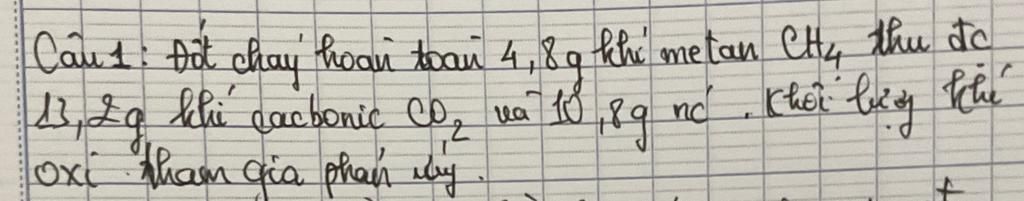 Câu 1: Đốt cháy hoàn toàn 4,8g khí metan CH4 thu đc
13,2g khí cacbonic CO2 và 10,8g nc. Khối lượng khí
oxi tham gia phản ứng.